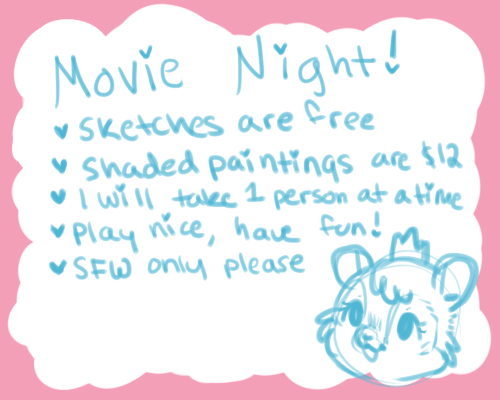 Movie Night!
♥ sketches are free
♥ shaded paintings are $12
♥ I will take 1 person at a time
♥ play nice, have fun!
♥ SFW only please